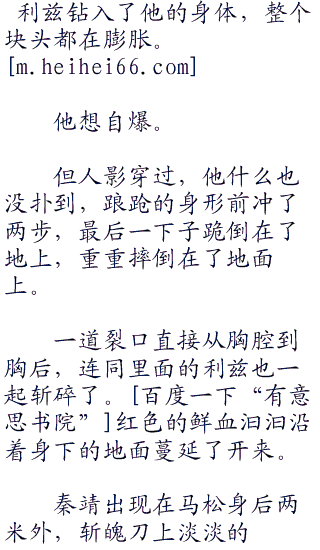 利兹钻入了他的身体，整个
块头都在膨胀。
[m.heihei66.com]
他想自爆。
但人影穿过，他什么也
没扑到，踉跄的身形前冲了
两步，最后一下子跪倒在了
地上，重重摔倒在了地面
上。
一道裂口直接从胸腔到
胸后，连同里面的利兹也一
起斩碎了。[百度一下“有意
思书院”]红色的鲜血汩汩沿
着身下的地面蔓延了开来。
秦靖出现在马松身后两
米外，斩魄刀上淡淡的